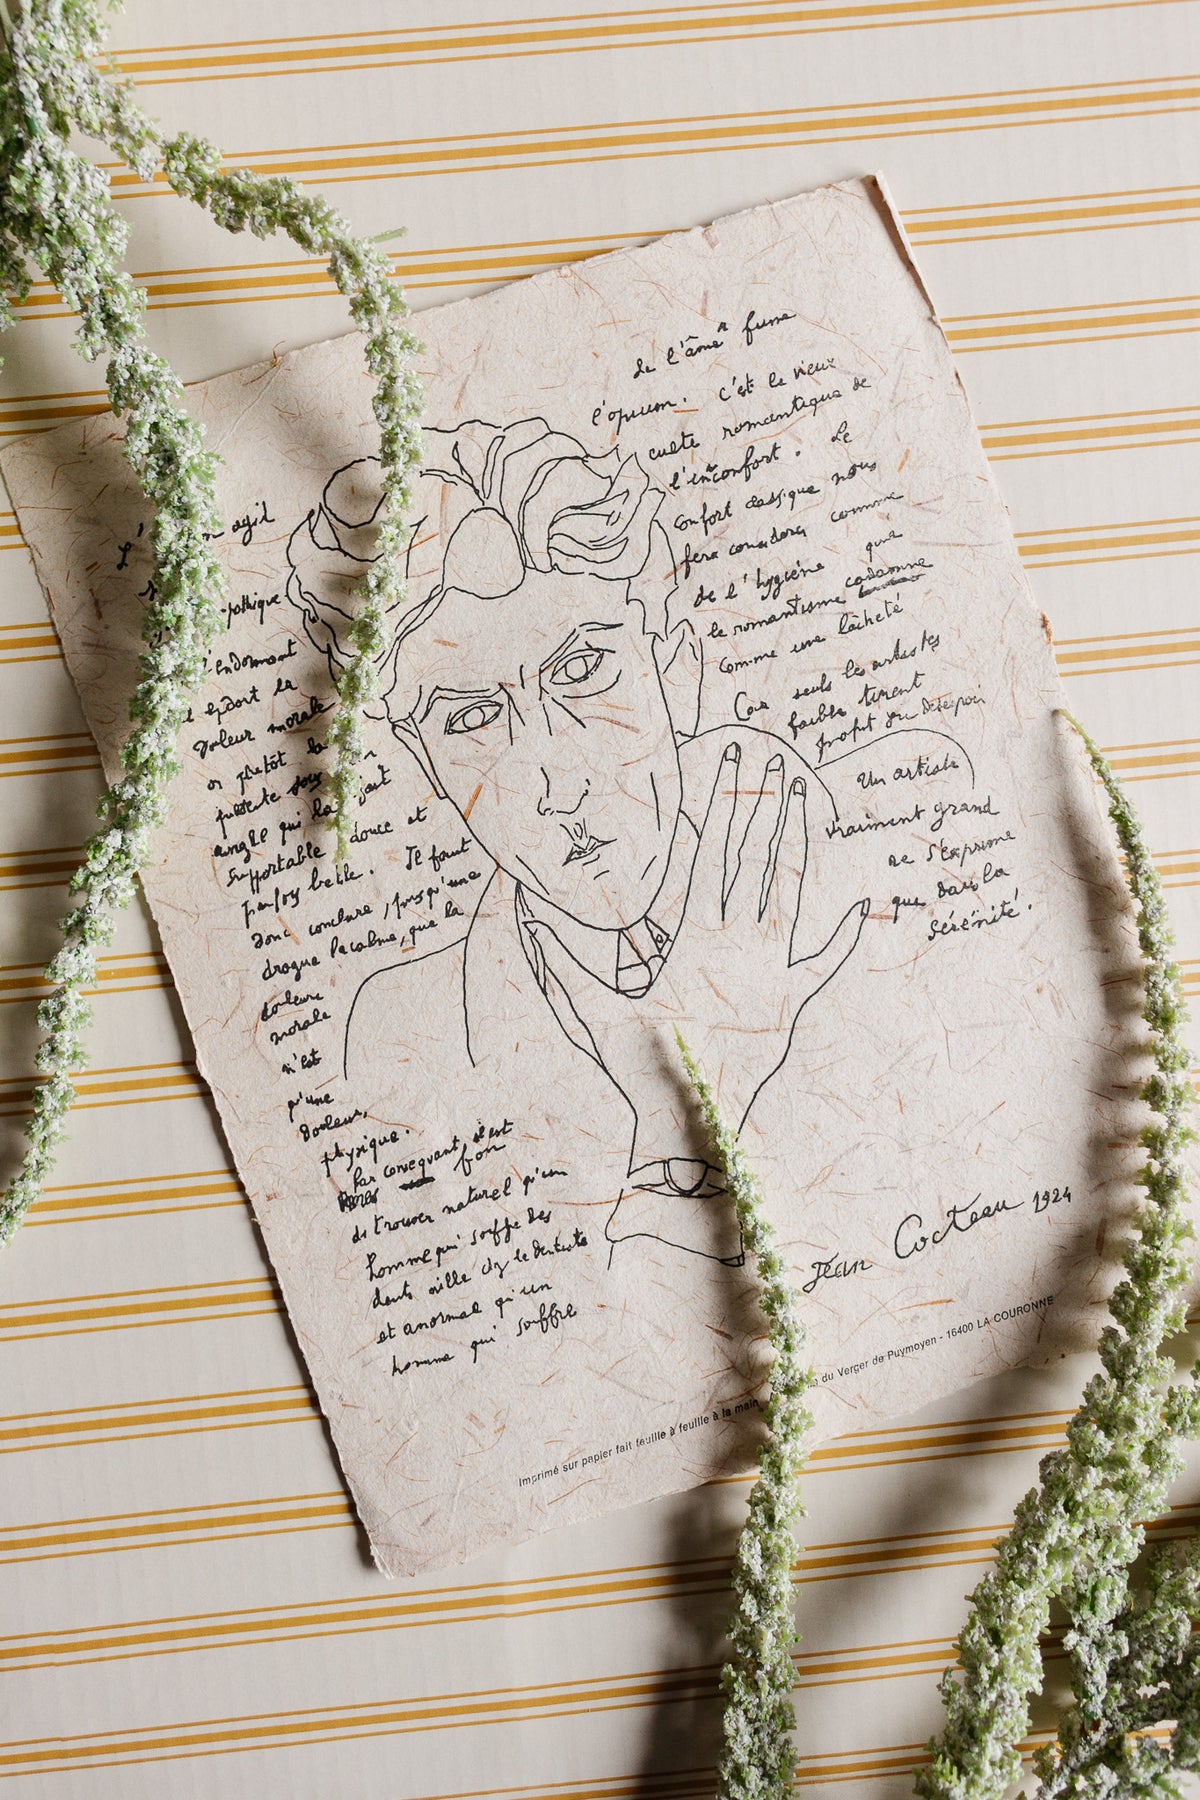 agit
-pathique
l'endormant
et endort la
douleur morale
ou plutôt la
puissante
angle qui la fait
supportable douce et
parfois belle. Il faut
donc conclure, puisqu'une
drogue la calme, que la
douleur
morale
n'est
qu'une
douleur
physique.
Par consequant, il est
fou
de trouver naturel qu'un
homme qui souffre des
dents aille chez le dentiste
et anormal qu'un
homme qui souffre
de l'âme fume
l'opium. C'est le vieux
culte romantique de
l'inconfort. Le
confort classique nous
fera considerer comme
de l'hygiène que
le romantisme
comme une lâcheté
Car seuls les artistes
faibles tirent
profit du désespoir
Un artiste
vraiment grand
ne s'exprime
que dans la
sérénité.
Jean Cocteau 1924
Imprimé sur papier fait feuille à feuille à la main
du Verger de Puymoyen - 16400 LA COURONNE